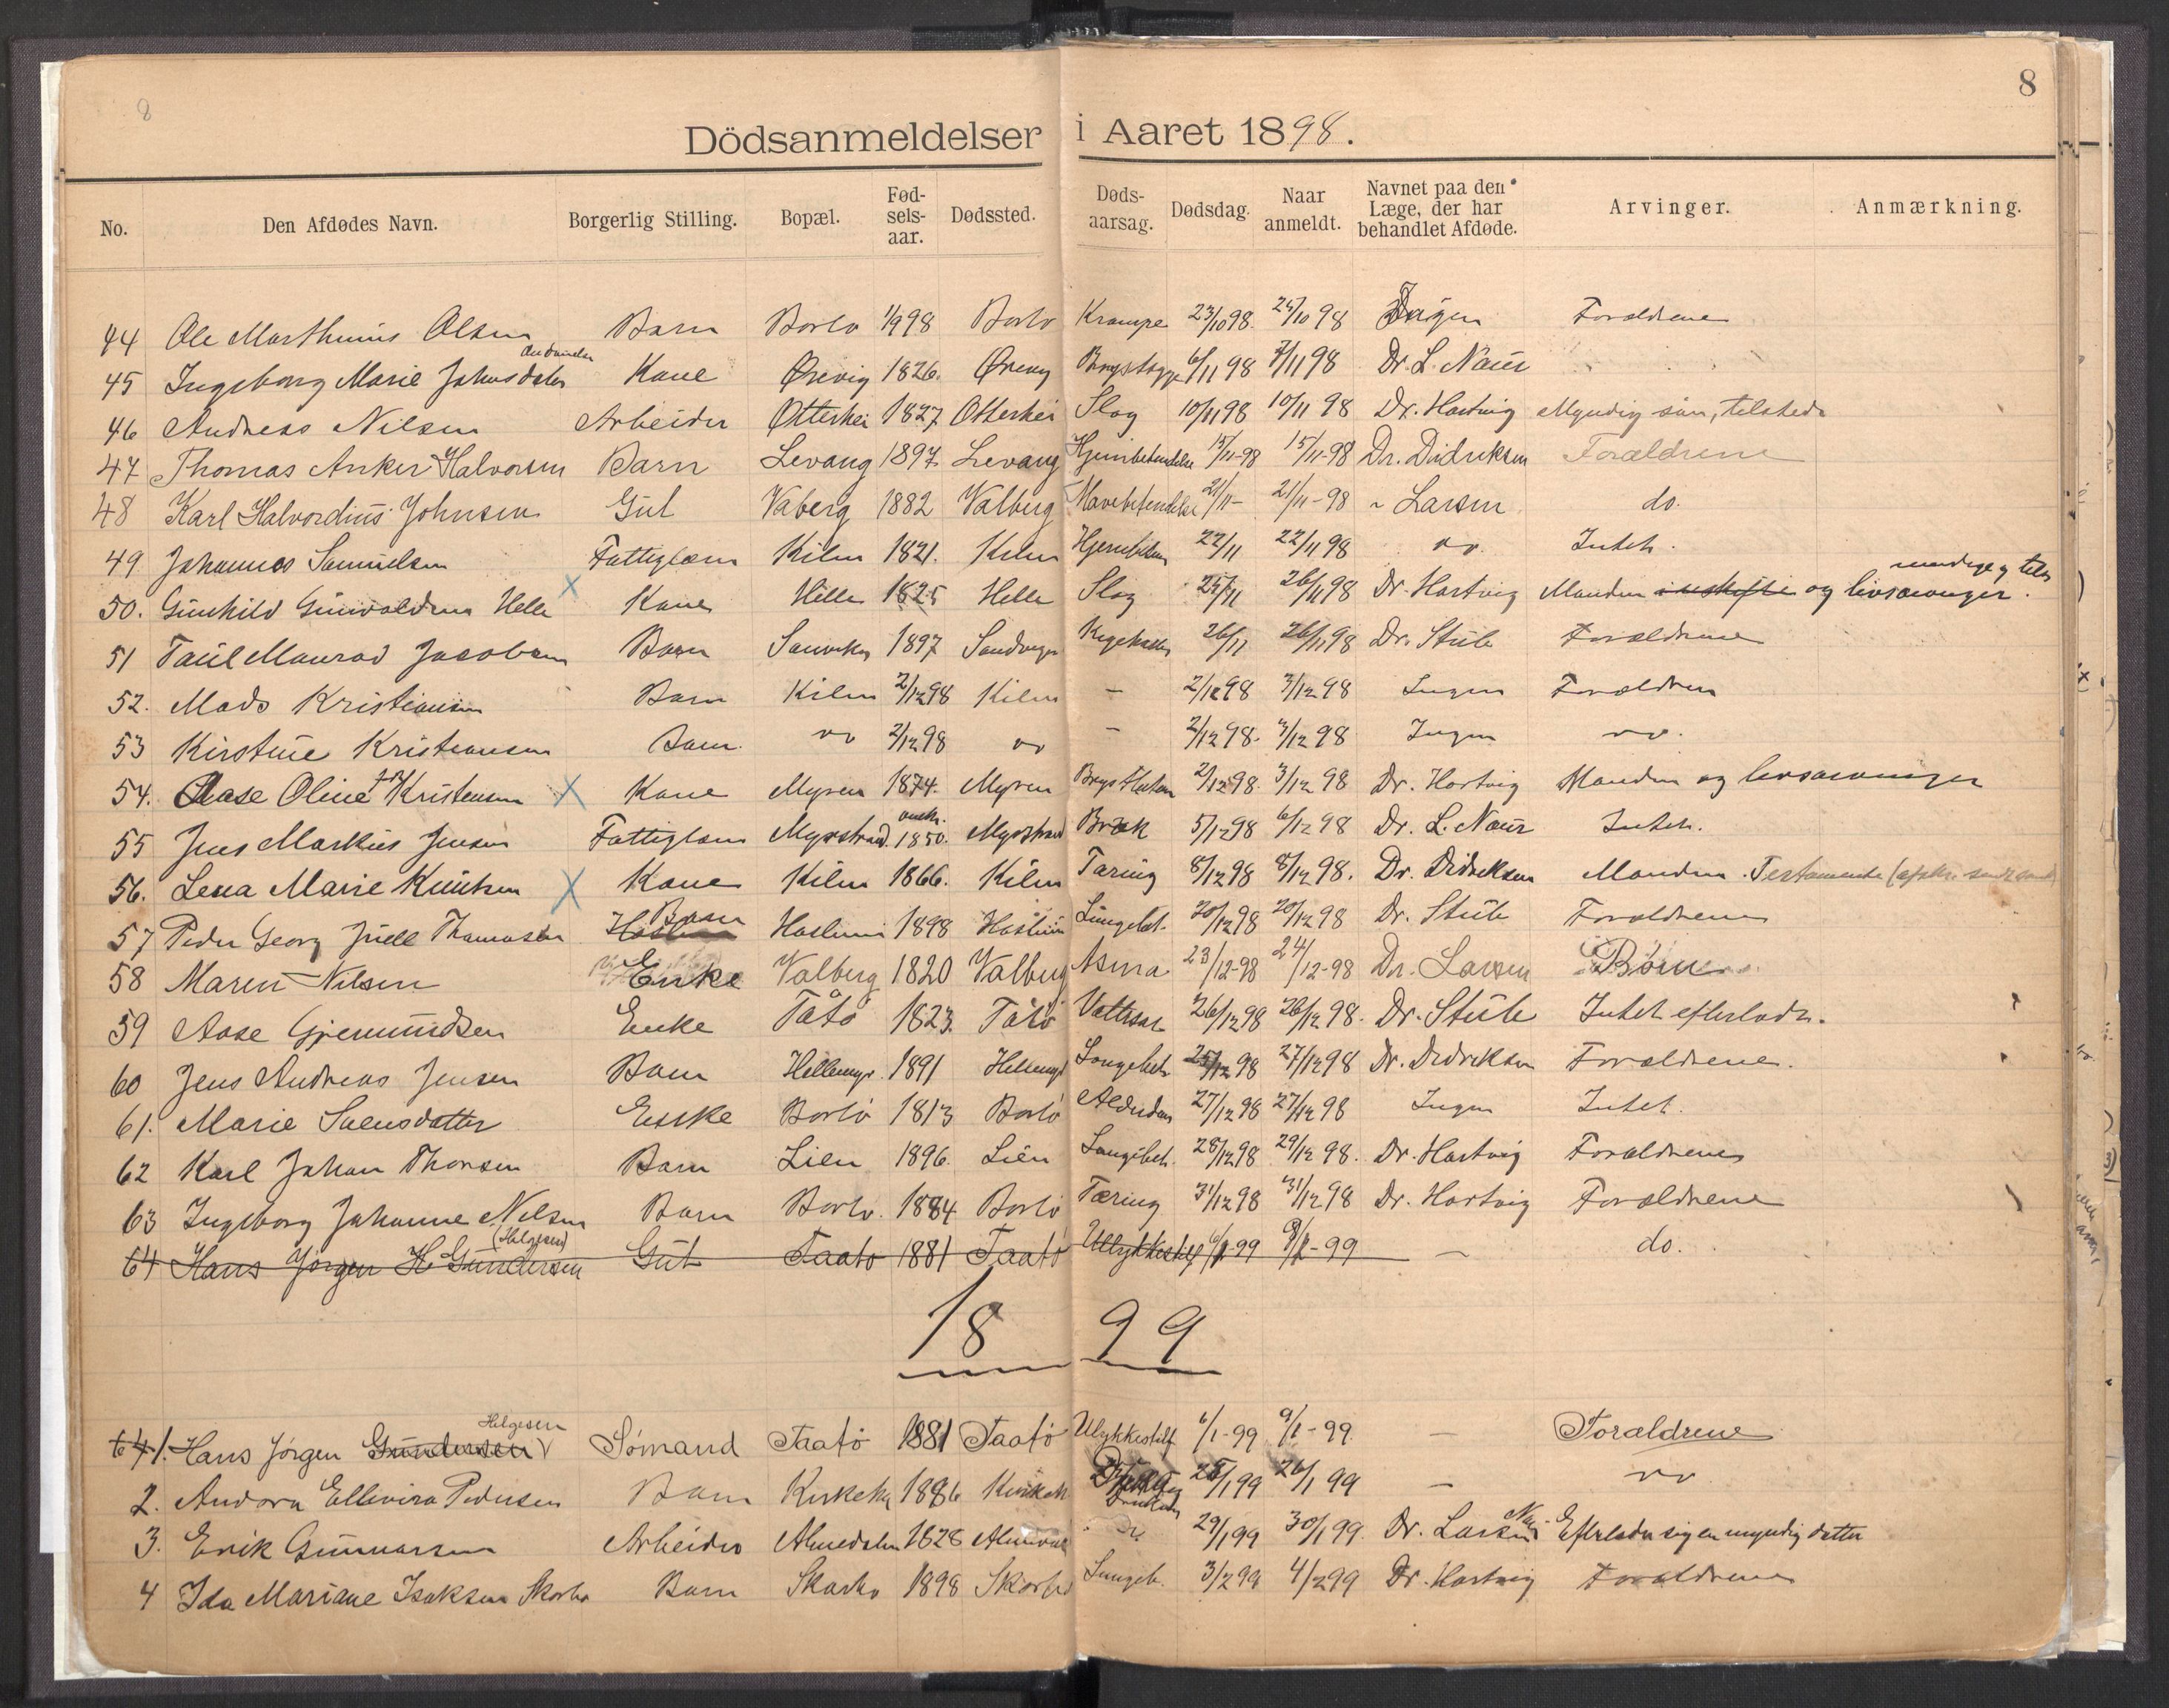 8
8
Dödsanmeldelser i Aaret 1898.
No. Den Afdødes Navn. Borgerlig Stilling. Bopæl. Fødselsaar. Dødssted. Dødsaarsag. Dødsdag. Naar anmeldt. Navnet paa den Læge, der har behandlet Afdøde. Arvinger. Anmærkning.
44 Ole Marthinius Olsen Barn Borlø 1/9 98 Borlø Krampe 23/10 98. 25/10 98 Ingen Forældrene
45 Ingeborg Marie Johnsdatter Kone Ørevig 1826. Ørevig 6/11 98 7/11 98 Dr. L. Naur
46 Andreas Nilsen Arbeider Otterhei 1827 Otterhei Slag 10/11 98 10/11 98 Dr. Hartvig Myndig søn, tilstede
47 Thomas Anker Halvorsen Barn Levang 1897 Levang Hjernbetændelse 15/11-98 15/11-98 Dr. Didriksen Forældrene
48 Karl Halvordius Johnsen Gut Vaberg 1882 Valberg Mavebetændelse 21/11- 21/11-98 " Larsen do.
49 Johannes Samuelsen Fattiglem Kilen 1821. Kilen 22/11 22/11 98 " Intet.
50. Gunhild Gunvaldsen Helle x Kone Helle 1825 Helle Slag 25/11 26/11 98 Dr. Hartvig Manden og livsarvinger.
51 Taul Maurad Jacobsen Barn 1897 26/11 26/11 98 Dr. Stub Forældrene
52. Mads Kristiansen Barn Kilen 2/12 98 Kilen - 2/12 98 3/12 98 Ingen Forældren
53 Kirstine Kristiansen Barn. " 2/12 98 " - 2/12 98. 3/12 98 Ingen "
54. Aase Oline Kristensen x Kone Myren 1874. Myren 2/12 98. 3/12 98 Dr. Hartvig Manden og livsarvinger
55 Jens Markus Jensen Fattiglem Myrstrand. omtr. 1850. Myrstrand Brok 5/12 98 6/12 98 Dr. L. Naur Intet.
56. Lena Marie Knutsen x Kone Kilen 1866. Kilen Tæring 8/12 98 8/12 98. Dr. Didriksen Manden. Testamente
57 Peder Georg Juell Thomassen Barn Haslum 1898 Haslum Lungebet. 20/12 98 20/12 98 Dr. Stub Forældrene
58 Maren Nilsen Enke Valberg 1820 Valberg Asma 23/12-98 24/12-98 Dr. Larsen Børn
59 Aase Gjermundsen Enke Tåtø 1823. Tåtø Vattersot 26/12 98 26/12 98. Dr. Stub Intet efterladt.
60 Jens Andreas Jensen Barn Hellemyr. 1891 Hellemyr Lungebet. 25/12 98 27/12 98 Dr. Didriksen Forældrene.
61. Marie Svensdatter Enke Borlø 1813 Borlø Alderdom 27/12 98 27/12 98 Ingen Intet.
62 Karl Johan Thorsen Barn Lien 1896. Lien Lungebet. 28/12 98 29/12 98. Dr. Hartvig Forældrene
63 Ingeborg Johanne Nelsen Barn Borlø. 1884 Borlø Tæring 31/12 98 31/12 98 Dr. Hartvig Forældrene
64 Hans Jørgen H Gundersen (Helgesen) Gut Taatø 1881 Taatø Ulykkestilf 6/1-99 9/1-99 - do.
1899
64 1. Hans Jørgen Gundersen Helgesen Sømand Taatø 1881 Taatø Ulykkestilf 6/1-99 9/1-99. - Forældrene
2. Andora Ellevira Pedersen Barn 1886 25/1 99 26/1 99 - "
3. Erik Gunnarsen Arbeider Almedalen 1828 " 29/1 99 30/1 99. Dr. Larsen Naur Efterlader sig en myndig datter
4 Ida Mariane Isaksen Skorbo Barn 1898 Lungeb. 3/2 99 4/2 99 Dr. Hartvig Forældrene